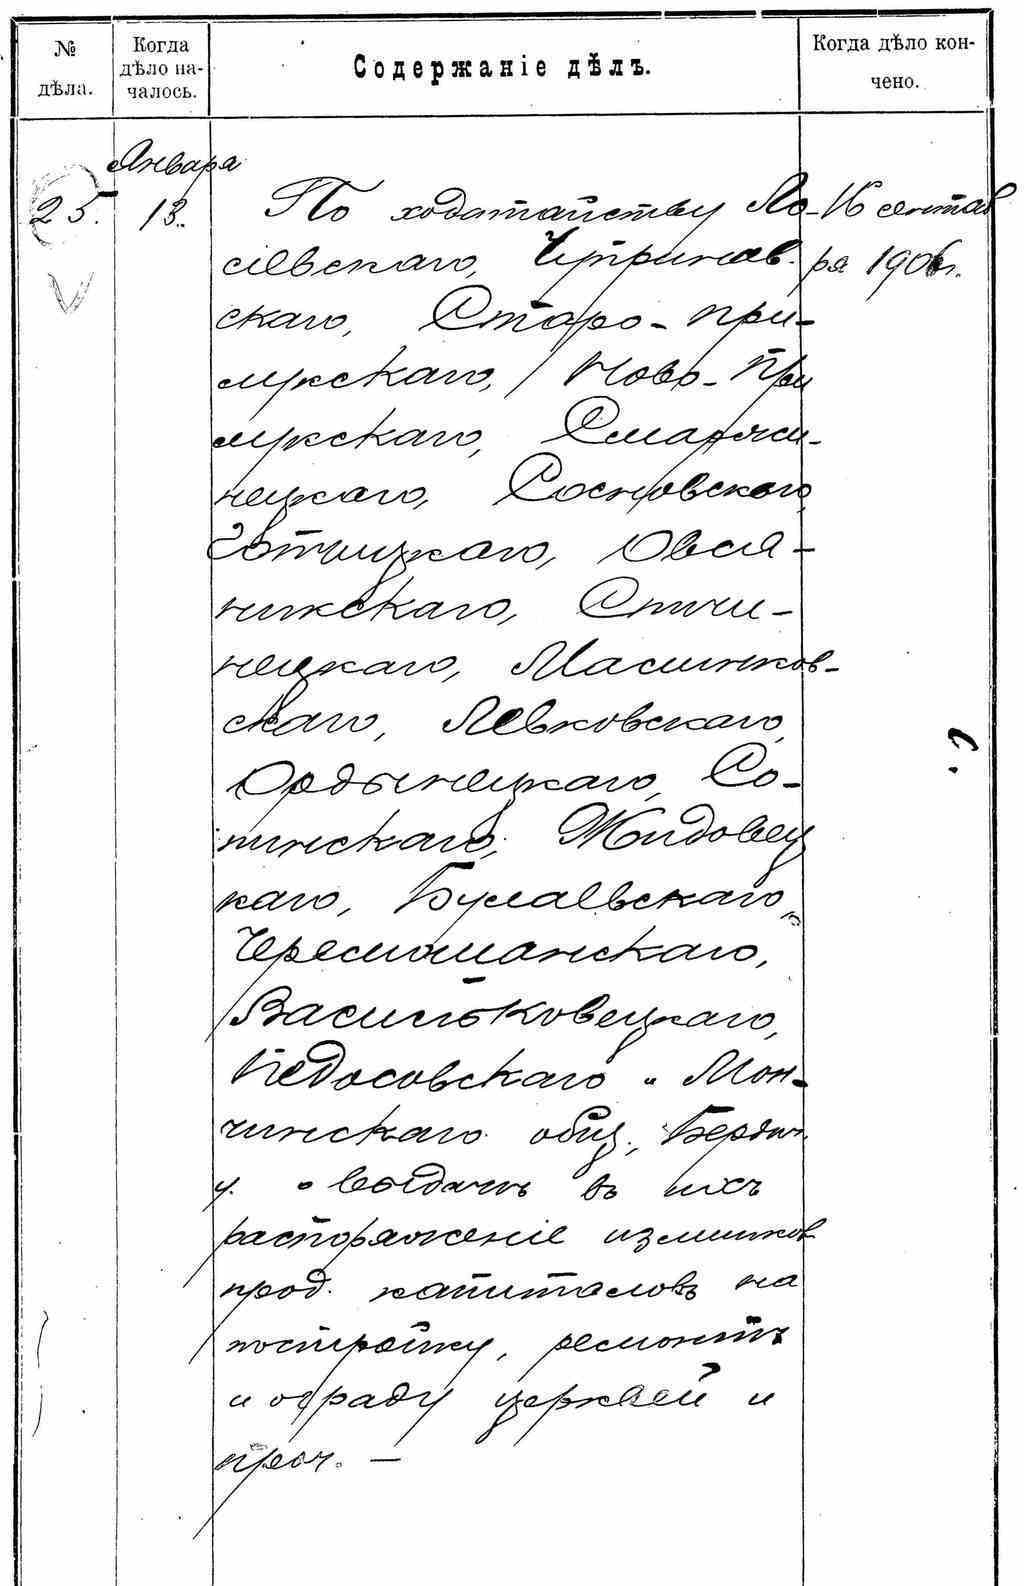 № дѣла.
Когда дѣло на-
чалось.
Содержаніе дѣлъ.
Когда дѣло кон-
чено.
Января
25. 13. По ходатайству Ло- 16 сентяб
сіевскаго, ря 1906 г.
скаго, Старо-при-
лукскаго, Ново-При
лукскаго,
нецкаго, Сосновскаго,
скаго, Овся-
никскаго, Спичи-
нецкаго, Маслинков-
скаго, Левковскаго,
Ордынецкаго, Со-
пинскаго, Жидовец
каго, Булаевскаго,
Черемошанскаго,
Васильковецкаго,
Федосовскаго и Мон-
чинскаго общ., Бердич.
у. о выдачѣ въ ихъ
распоряженіе излишков
прод. капиталовъ на
постройку, ремонтъ
и ограду церквей и
проч. —